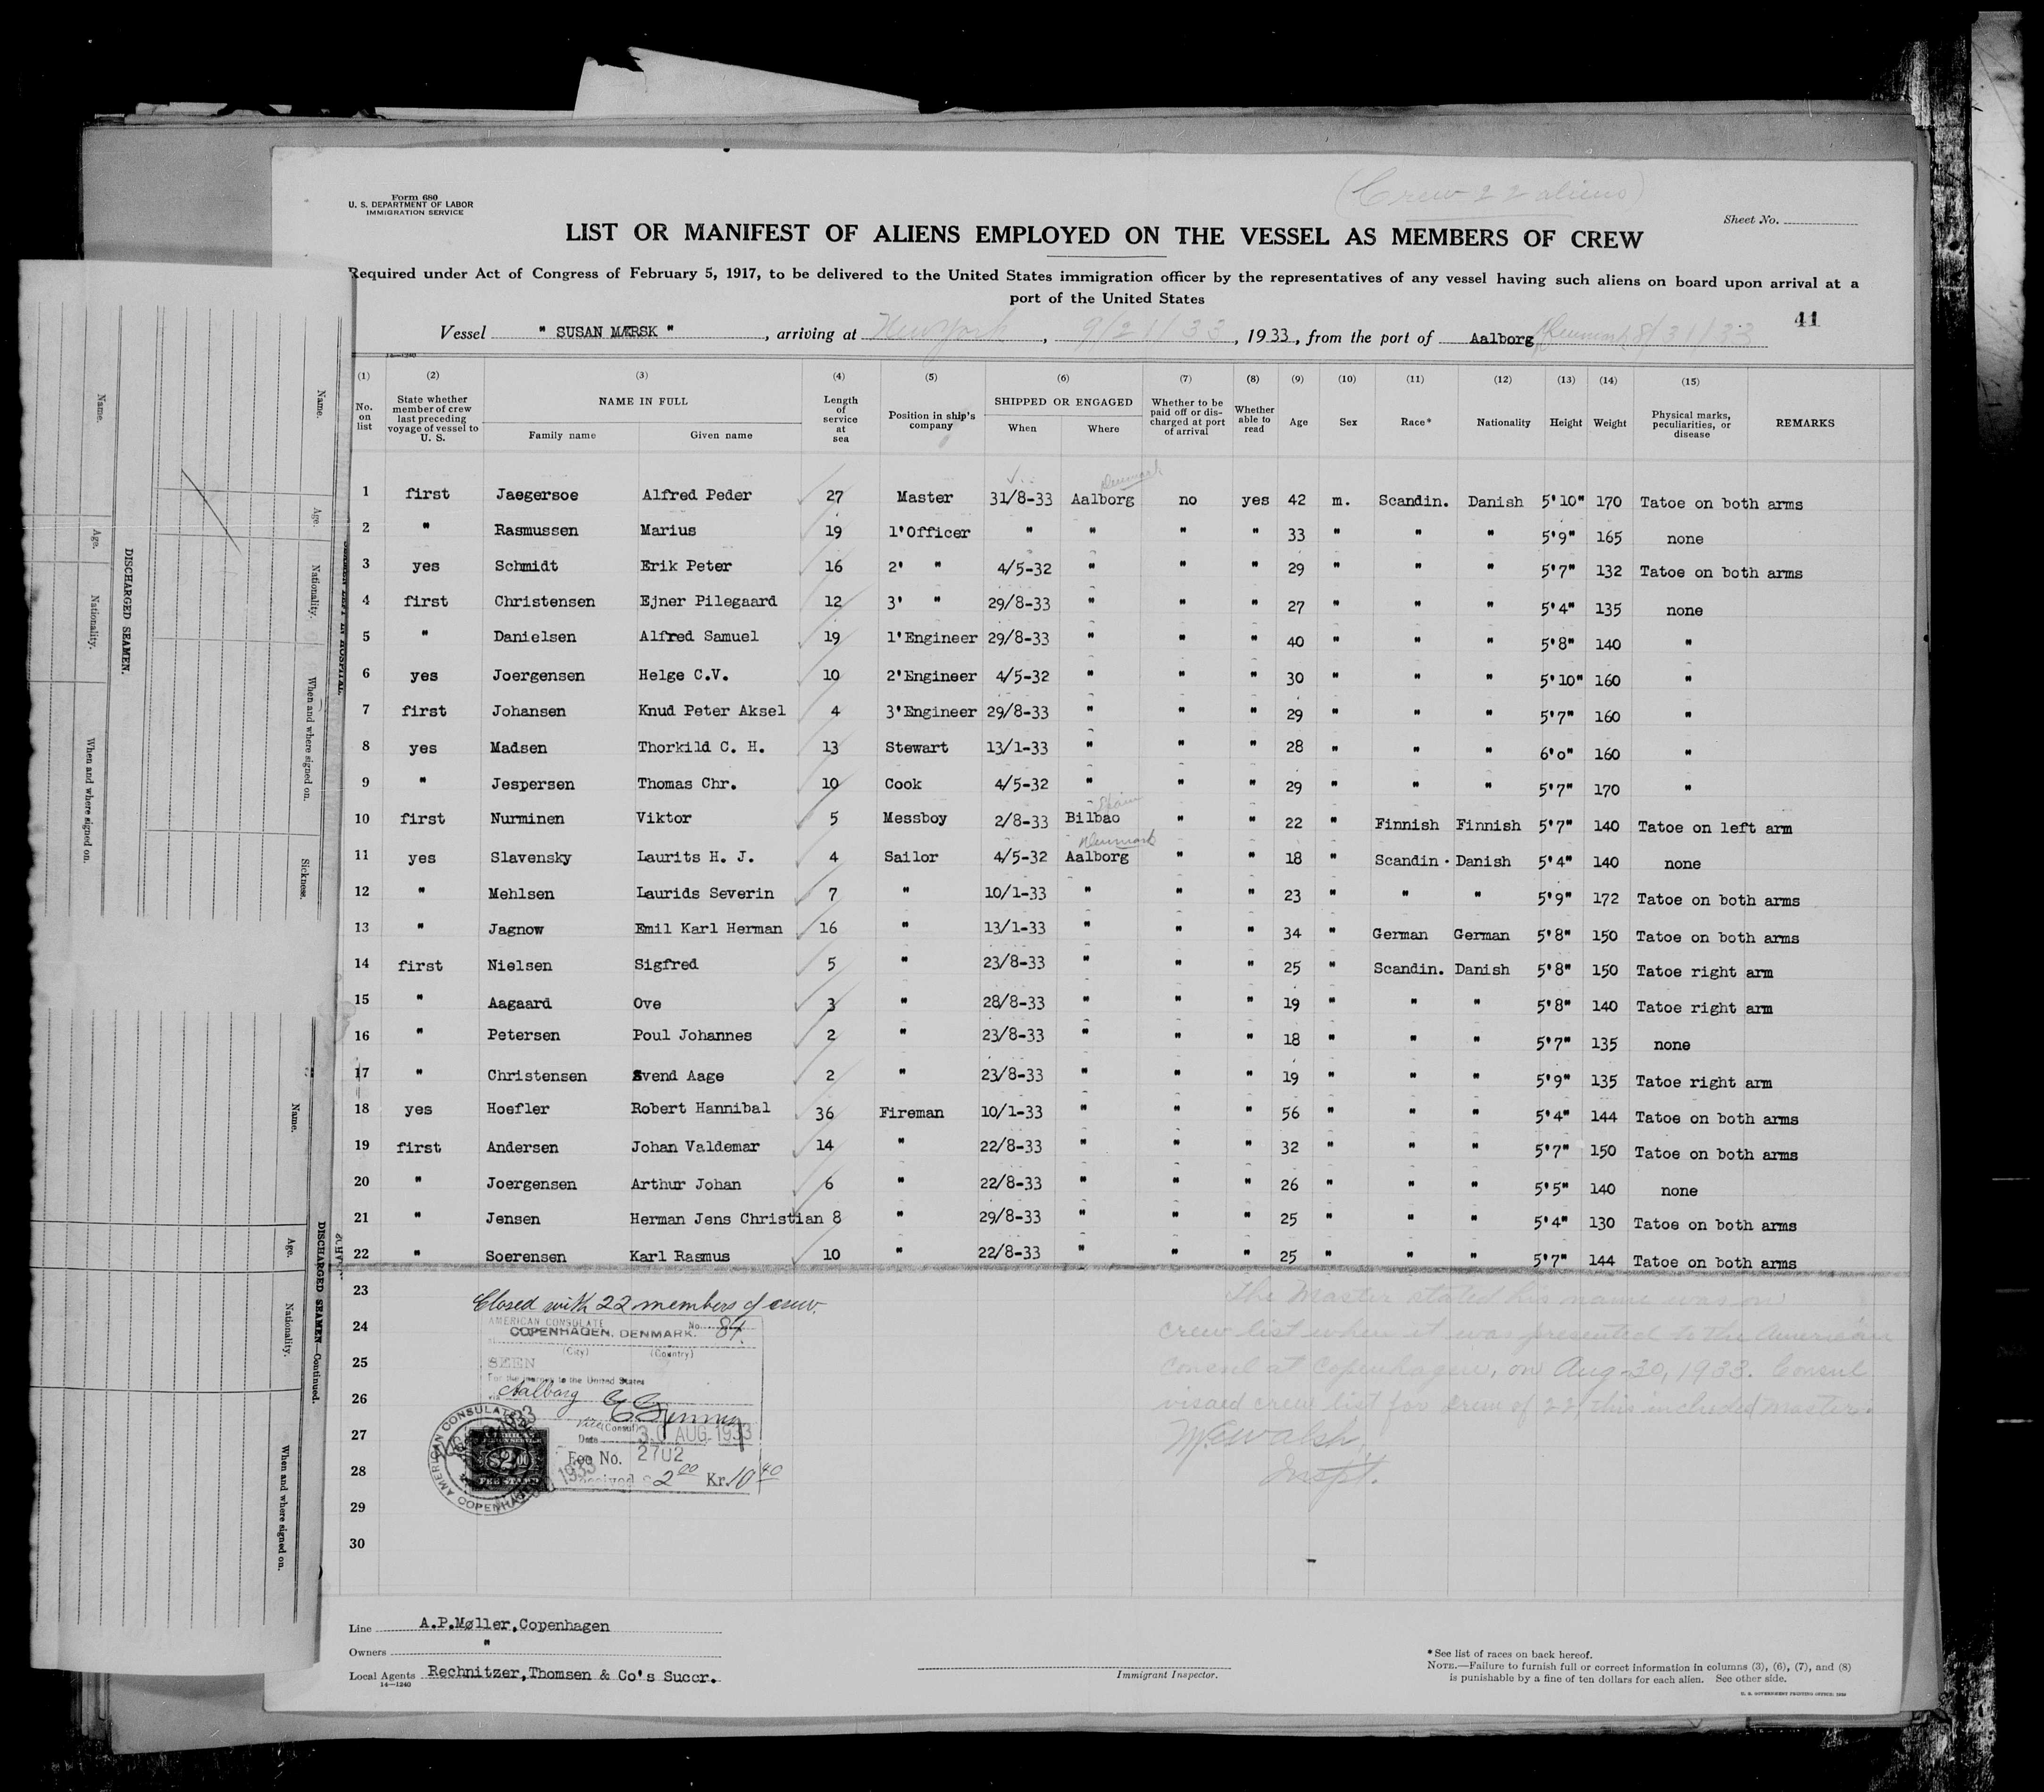 (Crew 22 aliens)
Form 680
U. S. DEPARTMENT OF LABOR
IMMIGRATION SERVICE
Sheet No.
LIST OR MANIFEST OF ALIENS EMPLOYED ON THE VESSEL AS MEMBERS OF CREW
Required under Act of Congress of February 5, 1917, to be delivered to the United States immigration officer by the representatives of any vessel having such aliens on board upon arrival at a
port of the United States
41
Vessel " SUSAN MÆRSK ", arriving at New York, 9/21/33, 1933, from the port of Aalborg Denmark 8/31/33
14—1240
(1) (2) (3) (4) (5) (6) (7) (8) (9) (10) (11) (12) (13) (14) (15)
No. on list State whether member of crew last preceding voyage of vessel to U. S. NAME IN FULL Family name Given name Length of service at sea Position in ship's company SHIPPED OR ENGAGED When Where Whether to be paid off or discharged at port of arrival Whether able to read Age Sex Race* Nationality Height Weight Physical marks, peculiarities, or disease REMARKS
Denmark
1 first Jaegersoe Alfred Peder 27 Master 31/8-33 Aalborg no yes 42 m. Scandin. Danish 5'10" 170 Tatoe on both arms
2 " Rasmussen Marius 19 1'Officer " " " " 33 " " " 5'9" 165 none
3 yes Schmidt Erik Peter 16 2' " 4/5-32 " " " 29 " " " 5'7" 132 Tatoe on both arms
4 first Christensen Ejner Pilegaard 12 3' " 29/8-33 " " " 27 " " " 5'4" 135 none
5 " Danielsen Alfred Samuel 19 1'Engineer 29/8-33 " " " 40 " " " 5'8" 140 "
6 yes Joergensen Helge C.V. 10 2'Engineer 4/5-32 " " " 30 " " " 5'10" 160 "
7 first Johansen Knud Peter Aksel 4 3'Engineer 29/8-33 " " " 29 " " " 5'7" 160 "
8 yes Madsen Thorkild C. H. 13 Stewart 13/1-33 " " " 28 " " " 6'o" 160 "
9 " Jespersen Thomas Chr. 10 Cook 4/5-32 " " " 29 " " " 5'7" 170 "
Spain
10 first Nurminen Viktor 5 Messboy 2/8-33 Bilbao " " 22 " Finnish Finnish 5'7" 140 Tatoe on left arm
Denmark
11 yes Slavensky Laurits H. J. 4 Sailor 4/5-32 Aalborg " " 18 " Scandin. Danish 5'4" 140 none
12 " Mehlsen Laurids Severin 7 " 10/1-33 " " " 23 " " " 5'9" 172 Tatoe on both arms
13 " Jagnow Emil Karl Herman 16 " 13/1-33 " " " 34 " German German 5'8" 150 Tatoe on both arms
14 first Nielsen Sigfred 5 " 23/8-33 " " " 25 " Scandin. Danish 5'8" 150 Tatoe right arm
15 " Aagaard Ove 3 " 28/8-33 " " " 19 " " " 5'8" 140 Tatoe right arm
16 " Petersen Poul Johannes 2 " 23/8-33 " " " 18 " " " 5'7" 135 none
17 " Christensen Svend Aage 2 " 23/8-33 " " " 19 " " " 5'9" 135 Tatoe right arm
18 yes Hoefler Robert Hannibal 36 Fireman 10/1-33 " " " 56 " " " 5'4" 144 Tatoe on both arms
19 first Andersen Johan Valdemar 14 " 22/8-33 " " " 32 " " " 5'7" 150 Tatoe on both arms
20 " Joergensen Arthur Johan 6 " 22/8-33 " " " 26 " " " 5'5" 140 none
21 " Jensen Herman Jens Christian 8 " 29/8-33 " " " 25 " " " 5'4" 130 Tatoe on both arms
22 " Soerensen Karl Rasmus 10 " 22/8-33 " " " 25 " " " 5'7" 144 Tatoe on both arms
23
24
25
26
27
28
29
30
Closed with 22 members of crew.
AMERICAN CONSULATE No. 84
COPENHAGEN, DENMARK.
(City) (Country)
SEEN
For the journey to the United States
via Aalborg
Vice (Consul)
Date 30 AUG 1933
Fee No. 2702
Received $ 2 00 Kr. 10 40
AMERICAN CONSULATE COPENHAGEN
The Master stated his name was on
crew list when it was presented to the American
Consul at Copenhagen, on Aug-30, 1933. Consul
visaed crew list for crew of 22, this included master.
McWalsh,
Inspt.
Line A.P.Møller,Copenhagen
Owners "
Local Agents Rechnitzer,Thomsen & Co's Succr.
14—1240
Immigrant Inspector.
*See list of races on back hereof.
NOTE.—Failure to furnish full or correct information in columns (3), (6), (7), and (8)
is punishable by a fine of ten dollars for each alien. See other side.
U. S. GOVERNMENT PRINTING OFFICE: 1930
Name. Age. Nationality. When and where signed on.
DISCHARGED SEAMEN.
Name. Age. Nationality. When and where signed on. Sickness.
DISCHARGED SEAMEN—Continued.
Name. Age. Nationality. When and where signed on.